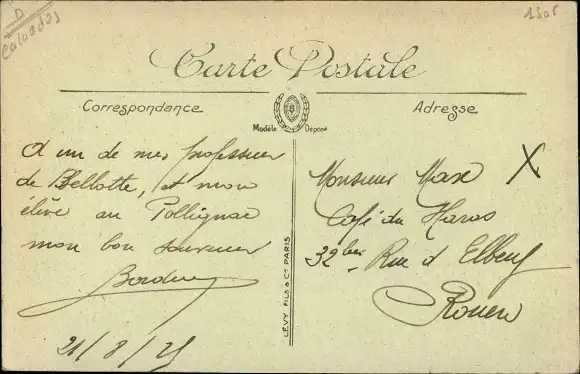 D
Calvados
Carte Postale
Correspondance
Adresse
Modèle Déposé
A un de mes professeur
de Bellotte, et mon
élève au Pollignac
mon bon souvenir
21/8/25
LÉVY FILS & Cie PARIS
Monsieur Maxe
Café du Haras
32 ter Rue d Elbeuf
Rouen
X